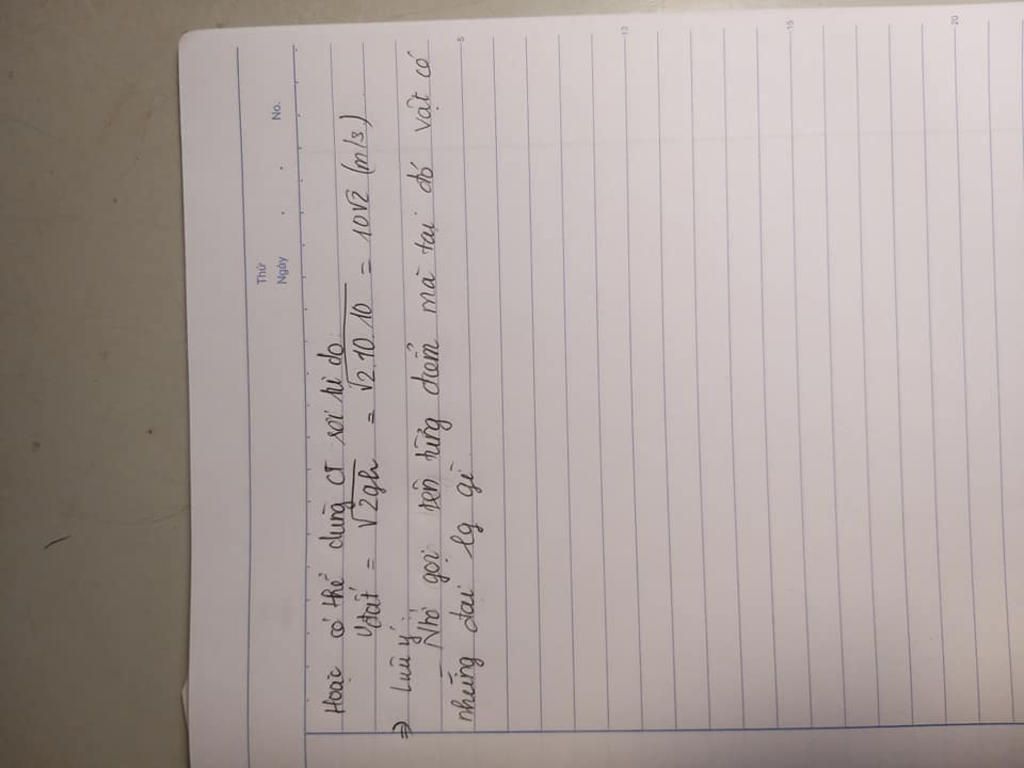 Thứ
Ngày
No.
Hoặc có thể dùng CT rơi tự do
Vđất = √2gh = √2.10.10 = 10√2 (m/s)
⇒ Lưu ý:
- Nhớ gọi tên từng điểm mà tại đó vật có
những đại lg gì
5
10
15
20